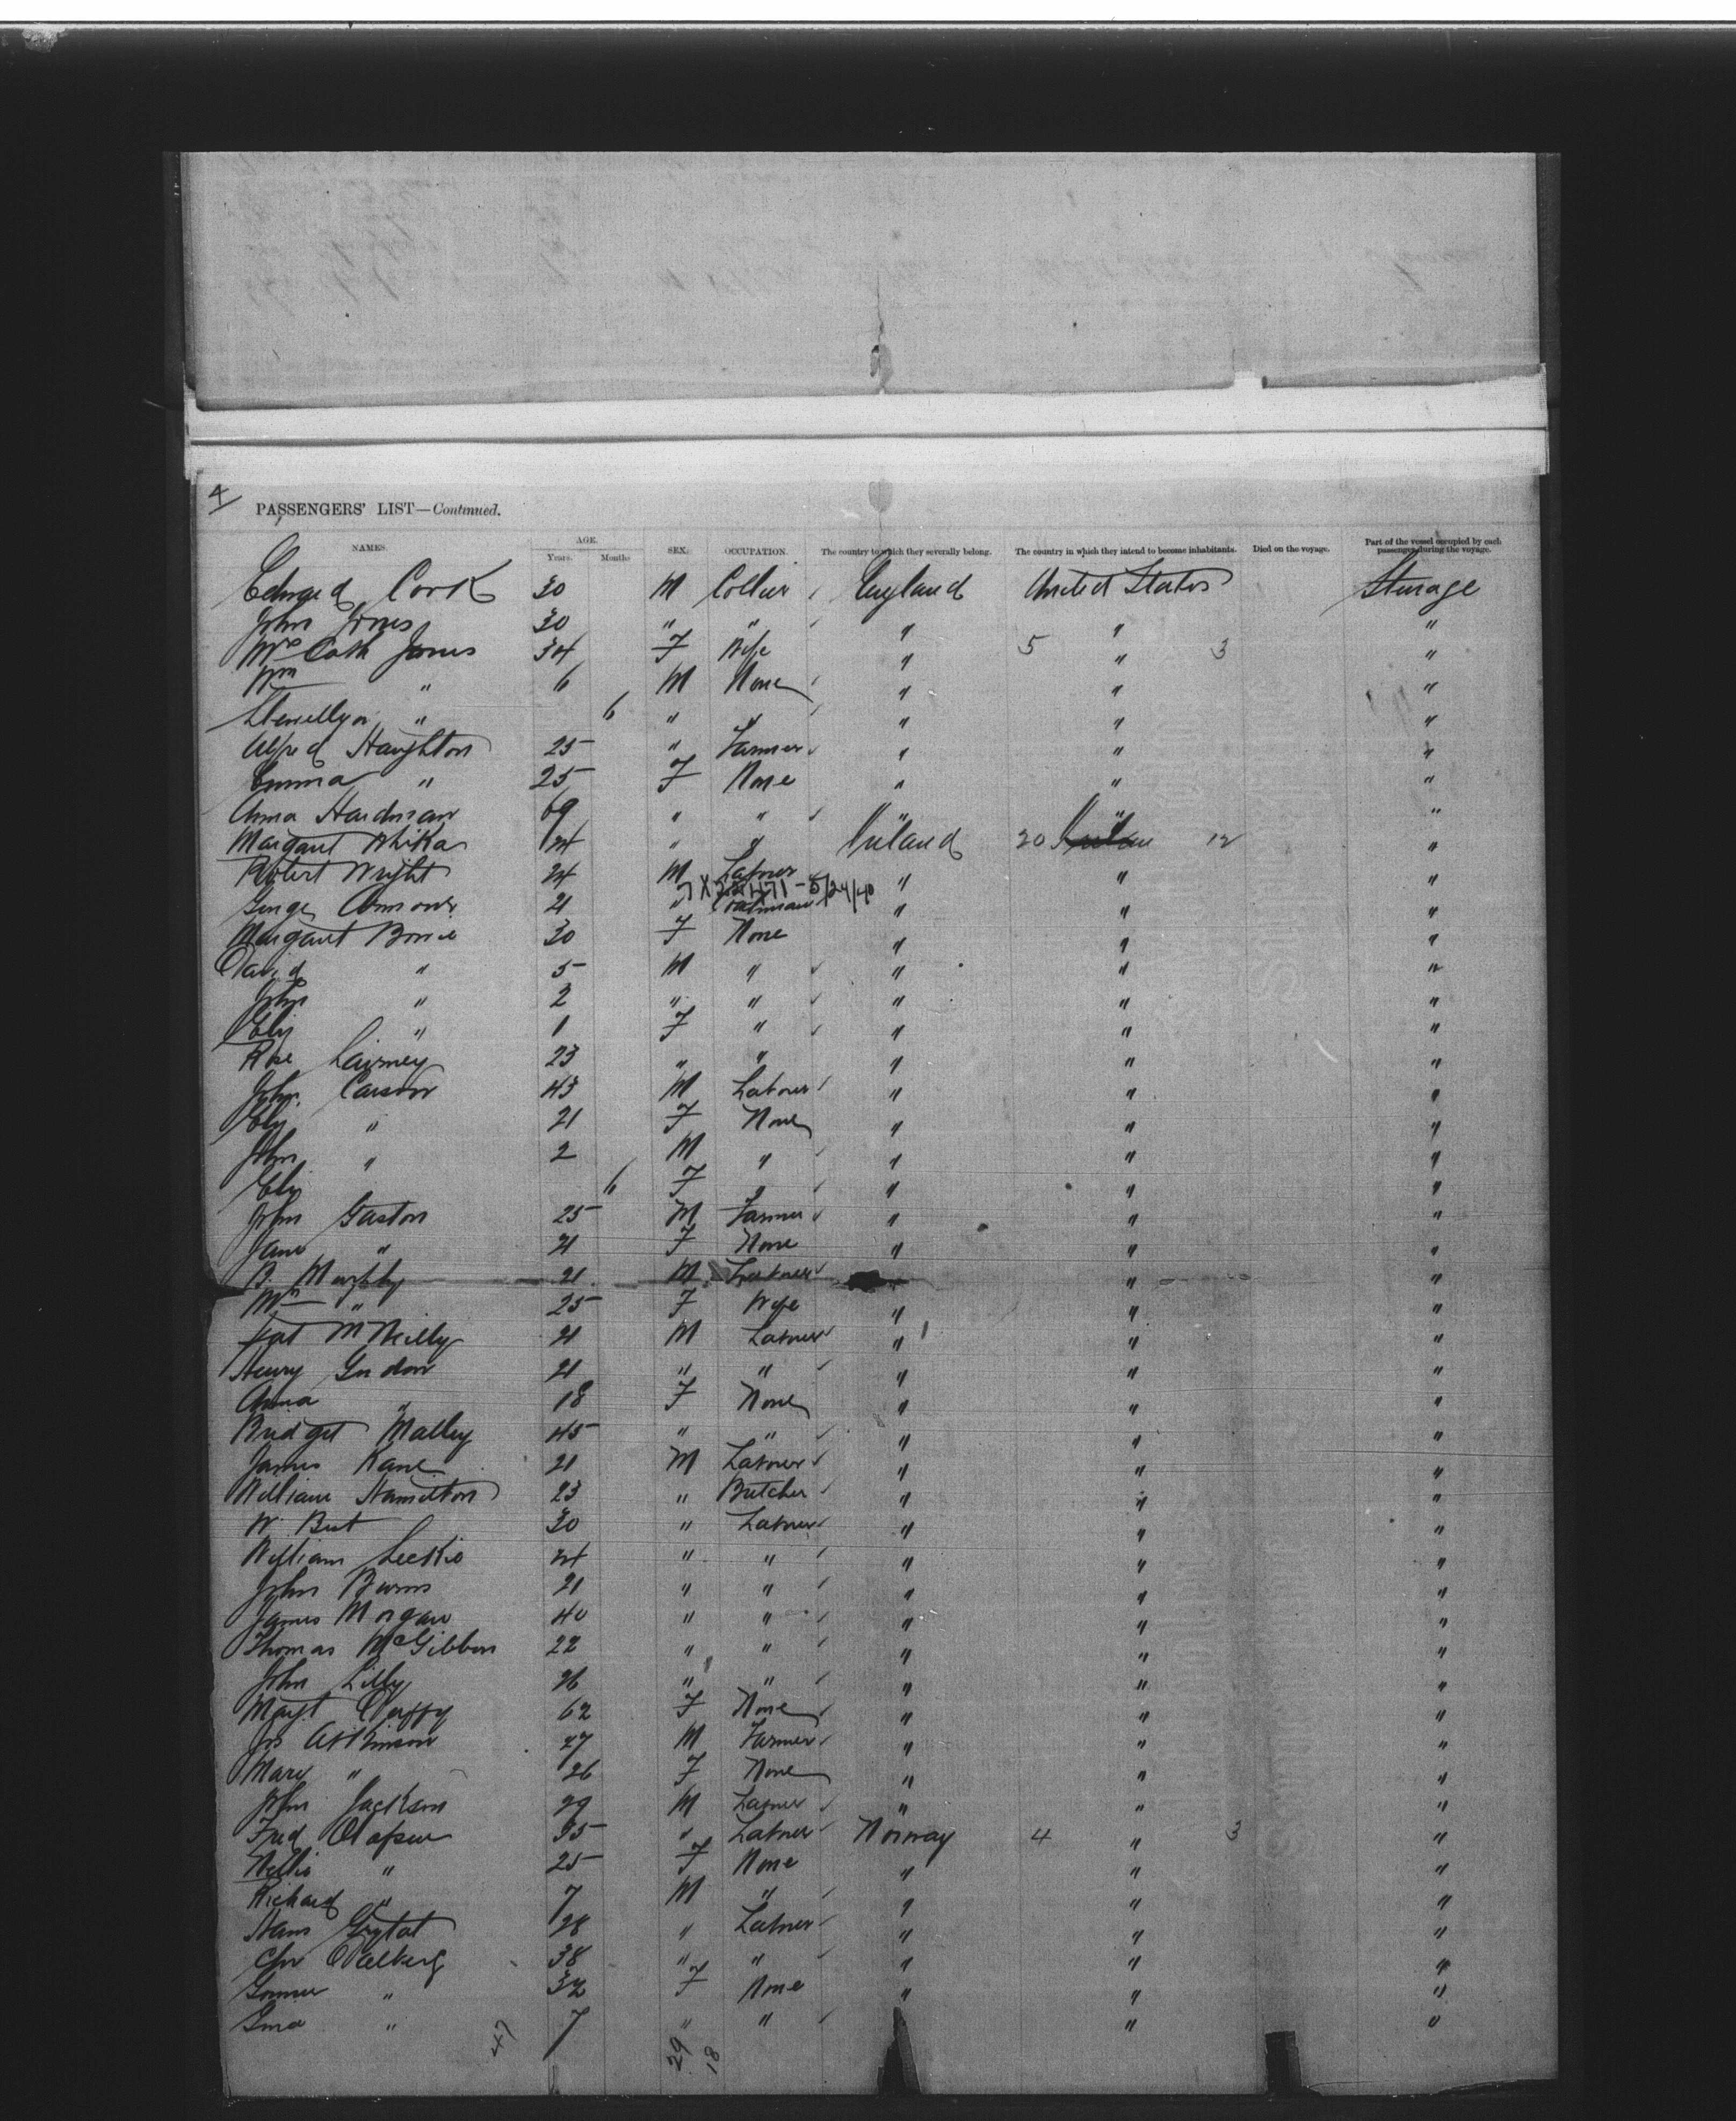 4
PASSENGERS' LIST—Continued.
NAMES. AGE. Years. Months SEX. OCCUPATION. The country to which they severally belong. The country in which they intend to become inhabitants. Died on the voyage. Part of the vessel occupied by each passenger during the voyage.
Edward Cook 30 M Collier England United States Sterage
John Jones 30 " " " " "
Mrs Cath Jones 34 F Wife " 5 " 3 "
Wm " 6 M None " " "
Llewellyn " 6 " " " " "
Alfred Haughton 25 " Farmer " " "
Emma " 25 F None " " "
Anna Hardman 69 " " " " "
Margaret 24 " " Ireland 20 12 "
Robert Wright 24 M Laborer " " "
7X22471-5/24/40
George 21 " " " "
Margaret 30 F None " " "
David " 5 M " " " "
John " 2 " " " " "
Eliz " 1 F " " " "
Rose 23 " " " " "
John Carson 43 M Laborer " " "
Eliz " 21 F None " " "
John " 2 M " " " "
Eliz 6 F " " " "
John Gaston 25 M Farmer " " "
Jane " 21 F None " " "
B. Murphy 21 M Laborer " "
Mrs " 25 F Wife " " "
Pat McNeilly 21 M Laborer " " "
Henry Gordon 21 " " " " "
Anna " 18 F None " " "
Bridget Malley 45 " " " " "
James Kane 21 M Laborer " " "
William Hamilton 23 " Butcher " " "
W. Best 30 " Laborer " " "
William Leckie 24 " " " " "
John Burns 21 " " " " "
James Morgan 40 " " " " "
Thomas McGibbon 22 " " " " "
John Lilly 26 " " " " "
Margt Duffy 62 F None " " "
Jas Atkinson 27 M Farmer " " "
Mary " 26 F None " " "
John Jackson 29 M Laborer " " "
Fred Olafsen 35 " Laborer Norway 4 " 3 "
Nellie " 25 F None " " "
Richard " 7 M " " " "
Hans 28 " Laborer " " "
Chr Dalberg 38 " " " " "
" 32 F None " " "
" 7 " " " "
47 29 18